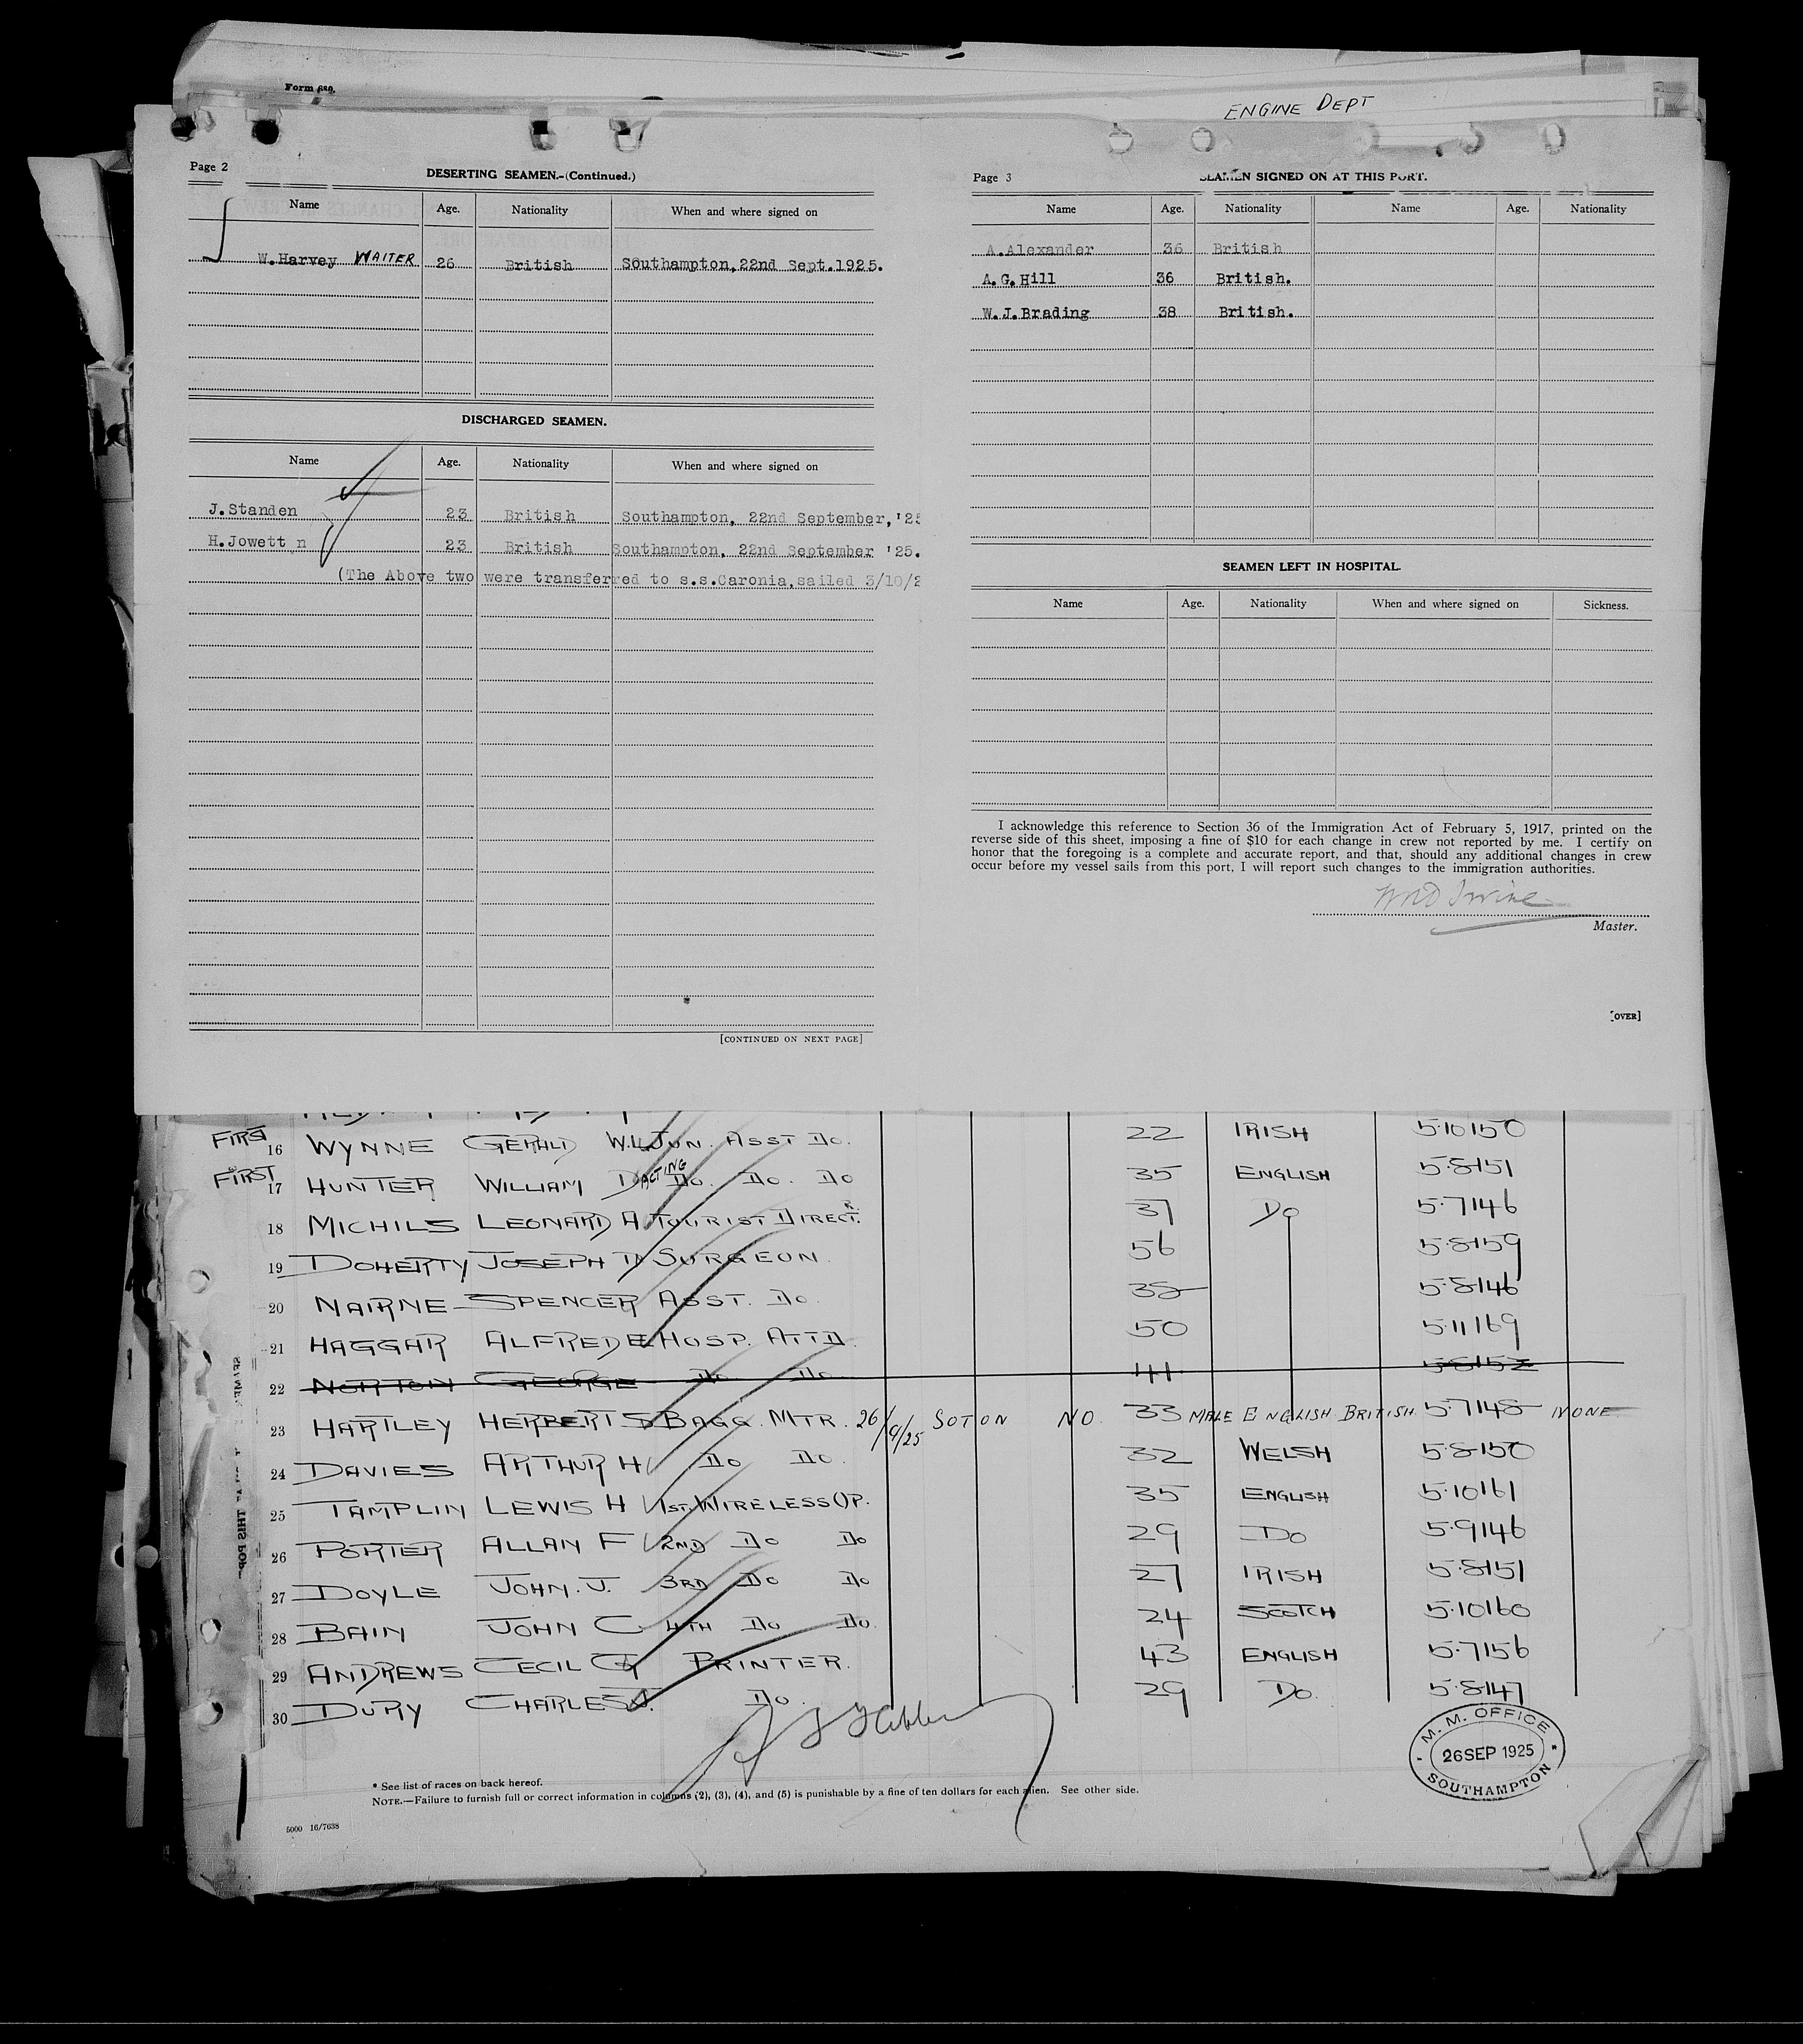 Form 689.
ENGINE DEPT
Page 2
DESERTING SEAMEN.-(Continued.)
Name Age. Nationality When and where signed on
W.Harvey WAITER 26 British Southampton,22nd Sept.1925.
DISCHARGED SEAMEN.
Name Age. Nationality When and where signed on
J.Standen 23 British Southampton, 22nd September,'25
H.Jowett n 23 British Southampton, 22nd September '25.
(The Above two were transferred to s.s.Caronia,sailed 3/10/2
[CONTINUED ON NEXT PAGE]
Page 3
SEAMEN SIGNED ON AT THIS PORT.
Name Age. Nationality Name Age. Nationality
A.Alexander 36 British
A.G.Hill 36 British.
W.J.Brading 38 British.
SEAMEN LEFT IN HOSPITAL.
Name Age. Nationality When and where signed on Sickness.
I acknowledge this reference to Section 36 of the Immigration Act of February 5, 1917, printed on the
reverse side of this sheet, imposing a fine of $10 for each change in crew not reported by me. I certify on
honor that the foregoing is a complete and accurate report, and that, should any additional changes in crew
occur before my vessel sails from this port, I will report such changes to the immigration authorities.
Irvine
Master.
[OVER]
FIRST 16 WYNNE GERALD W.L. JUN. ASST Do. 22 IRISH 5·10 150
FIRST 17 HUNTER WILLIAM D ACTING Do. Do. Do 35 ENGLISH 5·8 151
18 MICHILS LEONARD A. TOURIST DIRECTR. 37 Do 5·7 146
19 DOHERTY JOSEPH D SURGEON. 56 5·8 159
20 NAIRNE SPENCER ASST. Do. 38 5·8 146
21 HAGGAR ALFRED E HOSP. ATTD. 50 5·11 169
22 NORTON GEORGE Do Do 41 5·8 152
23 HARTLEY HERBERT S BAGG. MTR. 26/9/25 SOTON NO. 33 MALE ENGLISH BRITISH. 5·7 148 NONE
24 DAVIES ARTHUR H Do Do. 32 WELSH 5·8 150
25 TAMPLIN LEWIS H 1ST WIRELESS OP. 35 ENGLISH 5·10 161
26 PORTER ALLAN F 2ND Do Do 29 Do 5·9 146
27 DOYLE JOHN. J. 3RD Do Do 27 IRISH 5·8 151
28 BAIN JOHN C 4TH Do Do. 24 SCOTCH 5·10 160
29 ANDREWS CECIL G PRINTER. 43 ENGLISH 5·7 156
30 DURY CHARLES J. Do. 29 Do. 5·8 147
M. M. OFFICE
26 SEP 1925
SOUTHAMPTON
* See list of races on back hereof.
NOTE.—Failure to furnish full or correct information in columns (2), (3), (4), and (5) is punishable by a fine of ten dollars for each alien. See other side.
5000 16/7638